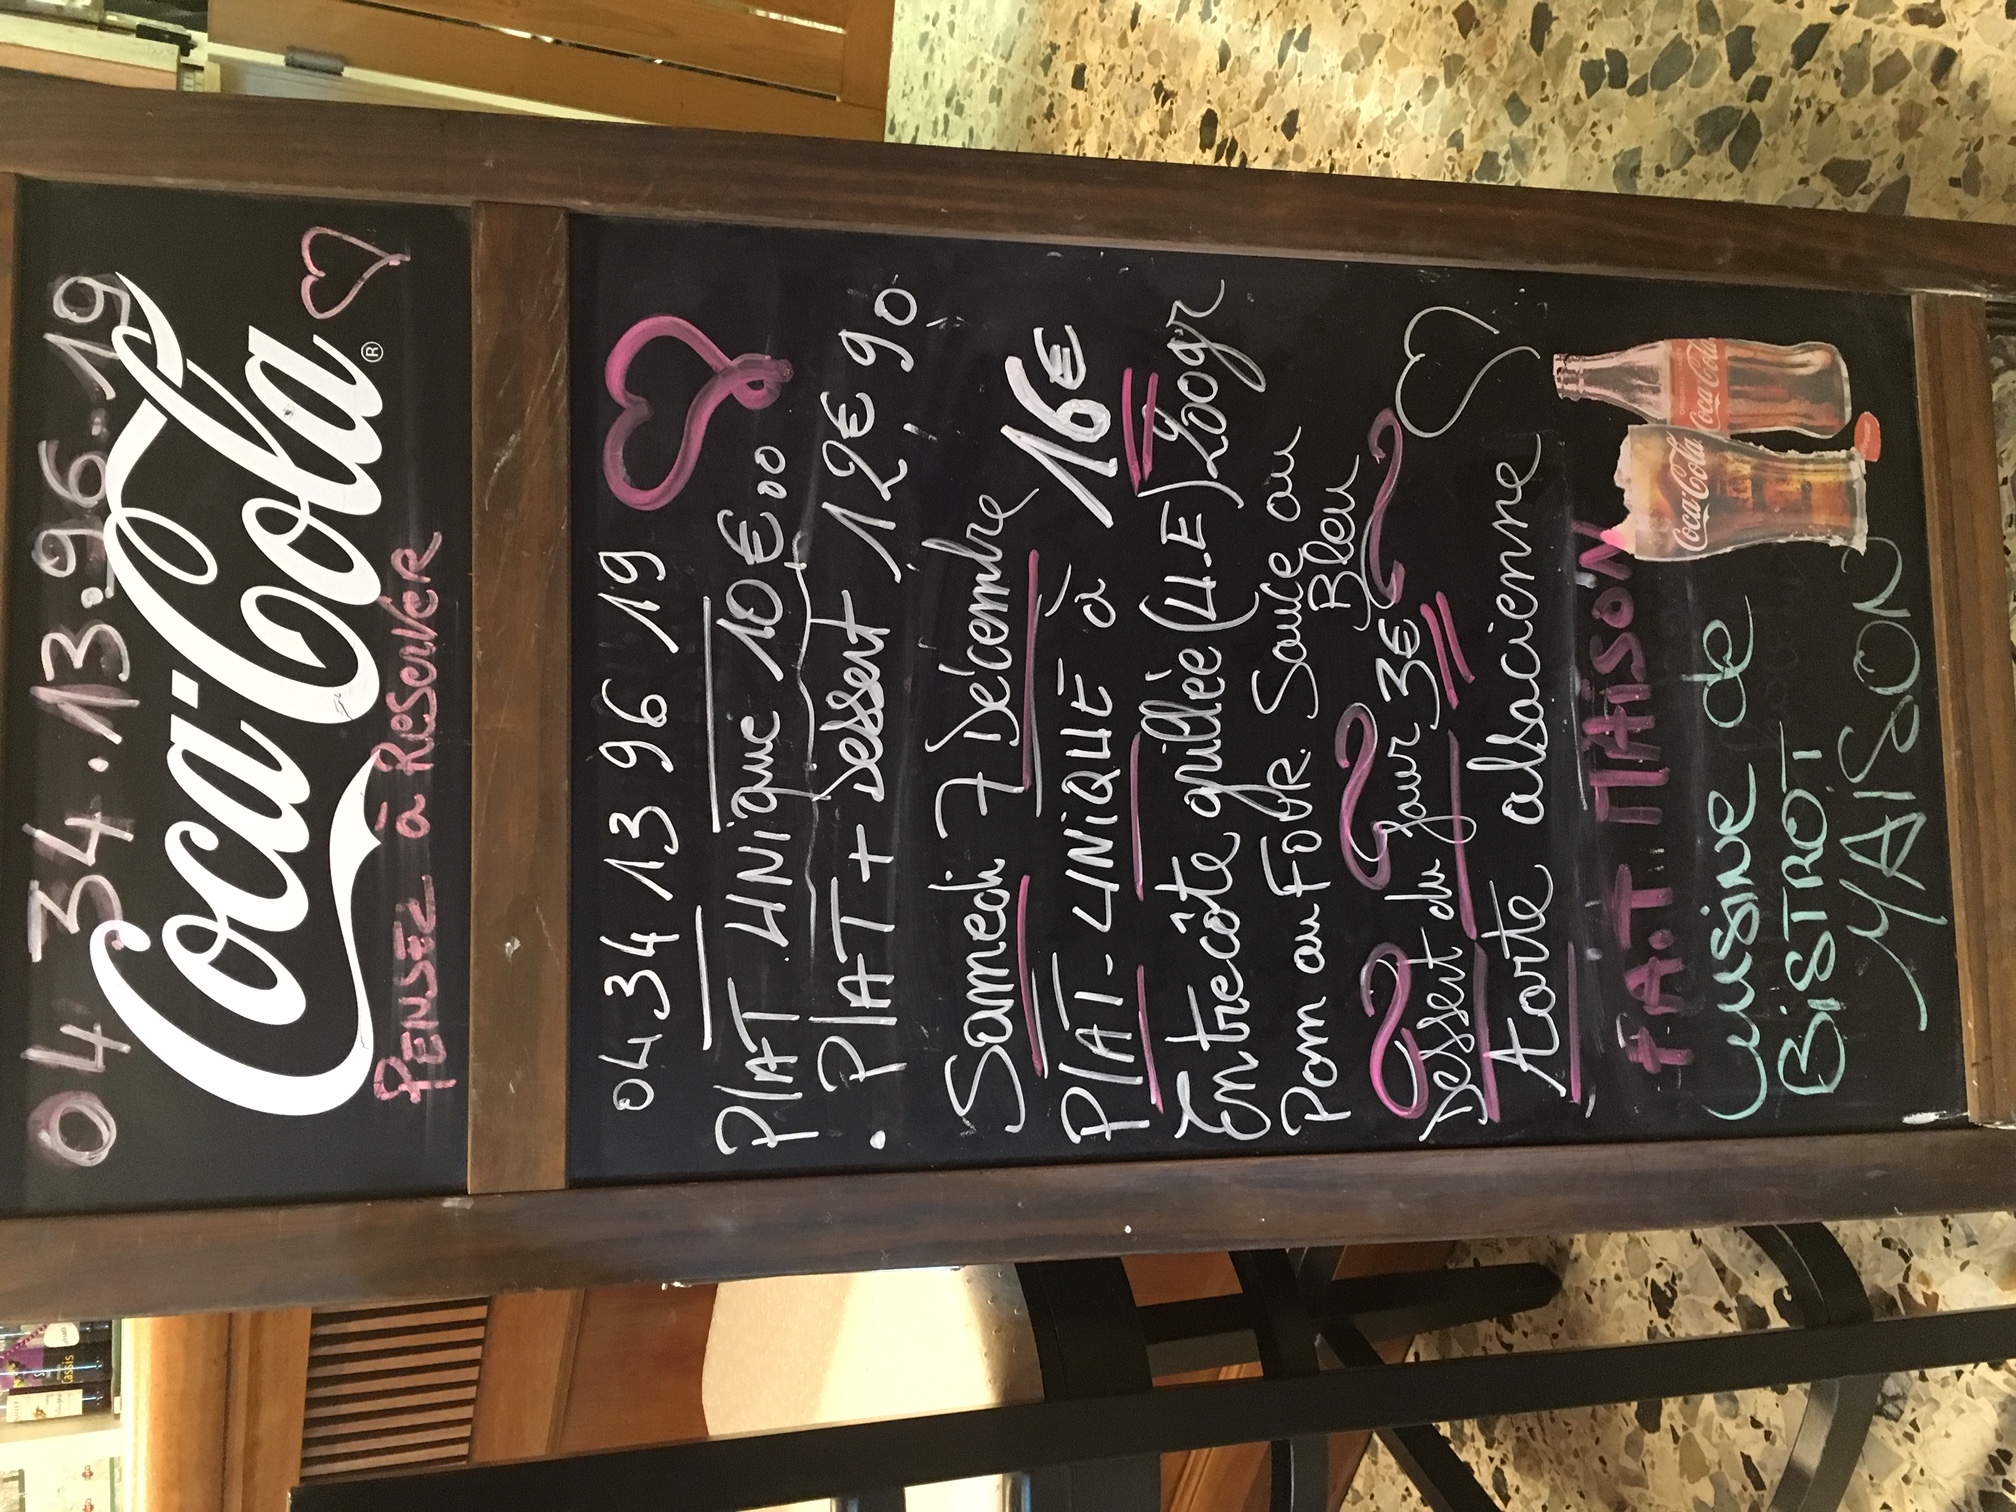 04 34.13.96.19
Coca-Cola
®
PENSEZ à RESERVER
04 34 13 96 19
PLAT UNiQue 10€00
. PLAT + Dessert 12€90
Samedi 7 Décembre
PLAT-UNiQUE à 16€
Entrecôte grillée (U.E) 200gr
Pom au FOUR. Sauce au
Bleu
Dessert du Jour 3€
tarte alsacienne
FAiT MAiSON
Cuisine de
BiSTROT
MAiSON
Coca-Cola
Coca-Cola
Cassis